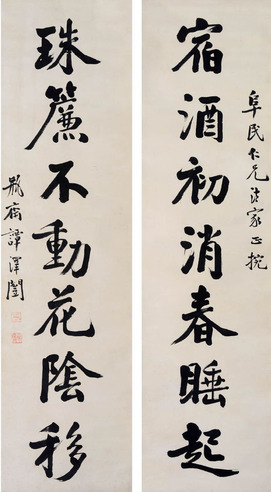 阜民仁兄法家正捥
宿酒初消春睡起
珠簾不動花陰移
瓶齋譚澤闓